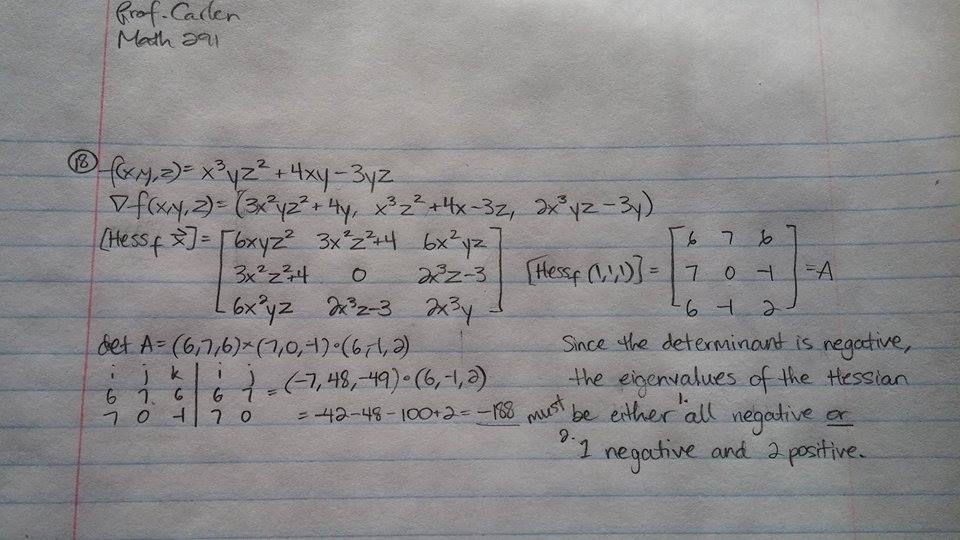 Prof. Carlen
Math 291
⑱ f(x,y,z) = x³yz² + 4xy - 3yz
∇f(x,y,z) = (3x²yz² + 4y, x³z² + 4x - 3z, 2x³yz - 3y)
[Hess_f x⃗] = [6xyz² 3x²z²+4 6x²yz
3x²z²+4 0 2x³z-3
6x²yz 2x³z-3 2x³y]
[Hess_f (1,1,1)] = [6 7 6
7 0 -1
6 -1 2] = A
det A = (6,7,6)×(7,0,-1)•(6,-1,2)
i j k | i j
6 7 6 | 6 7
7 0 -1 | 7 0
= (-7,48,-49)•(6,-1,2)
= -42-48-100+2 = -188
Since the determinant is negative,
the eigenvalues of the Hessian
must be either 1. all negative or
2. 1 negative and 2 positive.